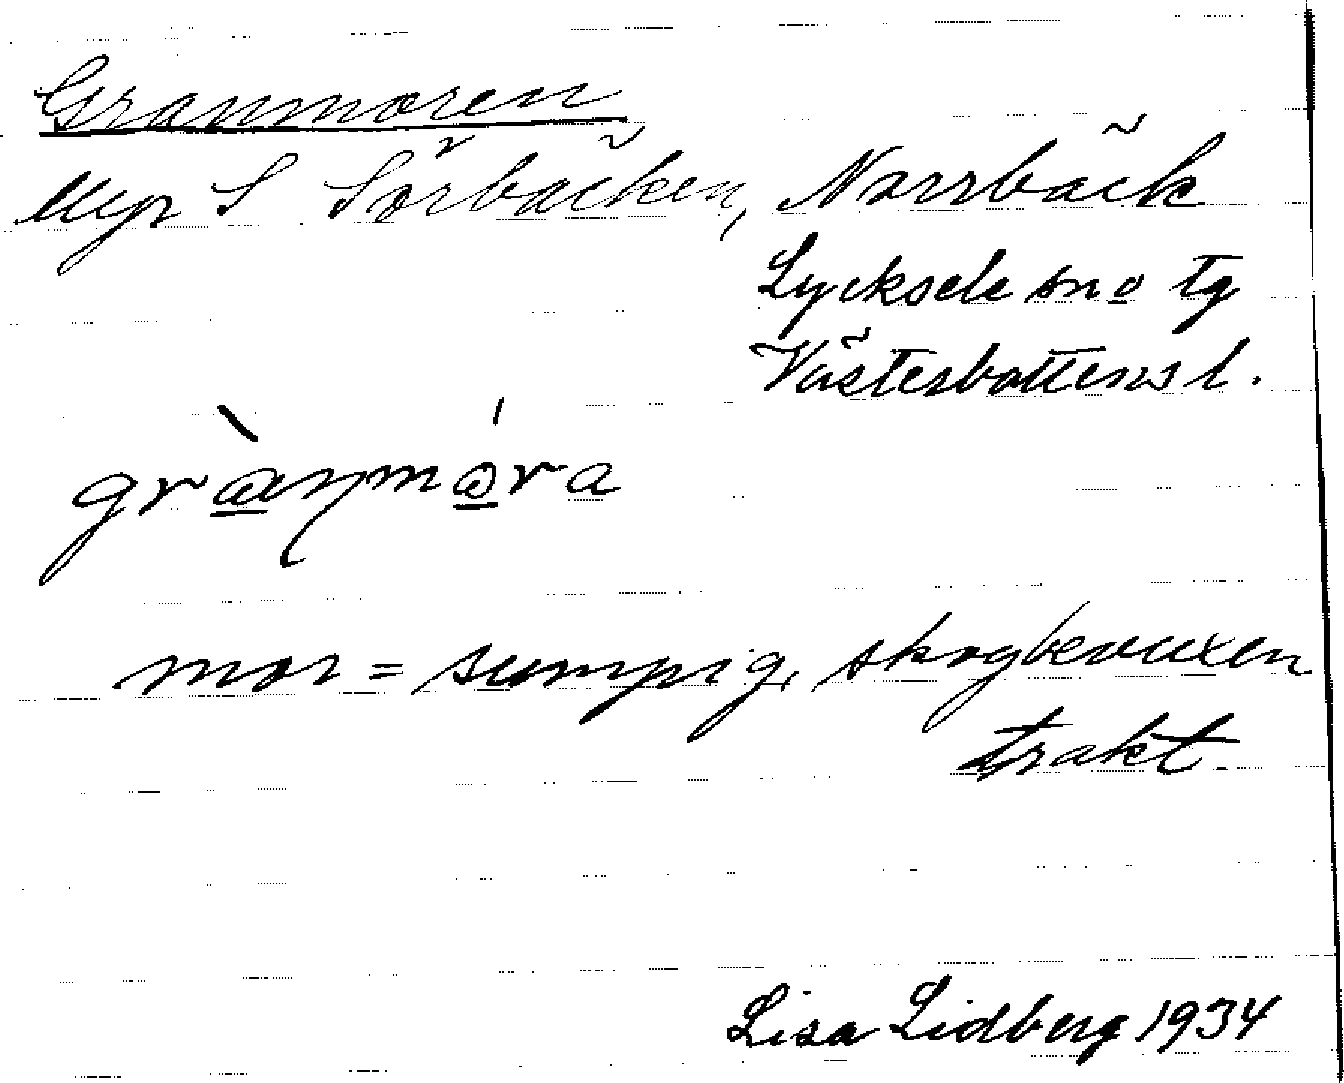 Granmoren
Myr S Sörbäcken, Norrbäck
Lycksele sn o tg
Västerbottens l.
mor = sumpig, skogbevuxen
trakt.
Lisa Lidberg 1934